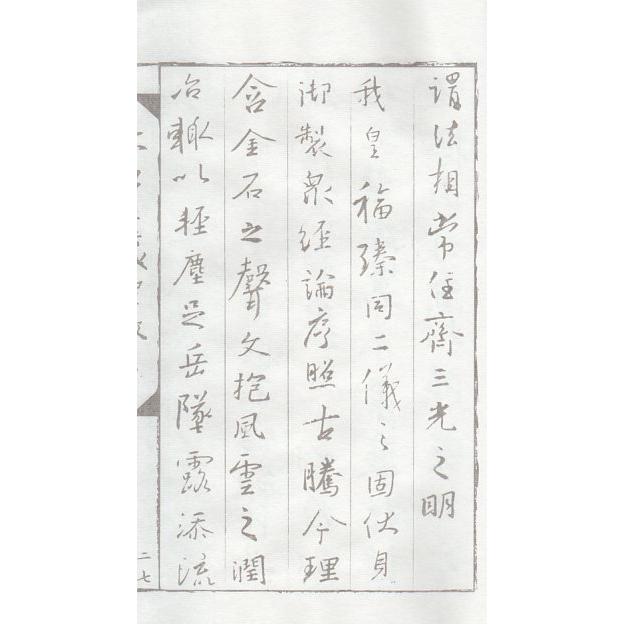 謂法相常住齊三光之明
我皇福臻同二儀之固伏見
御製衆經論序照古騰今理
含金石之聲文抱風雲之潤
治輒以輕塵足岳墜露添流
二七